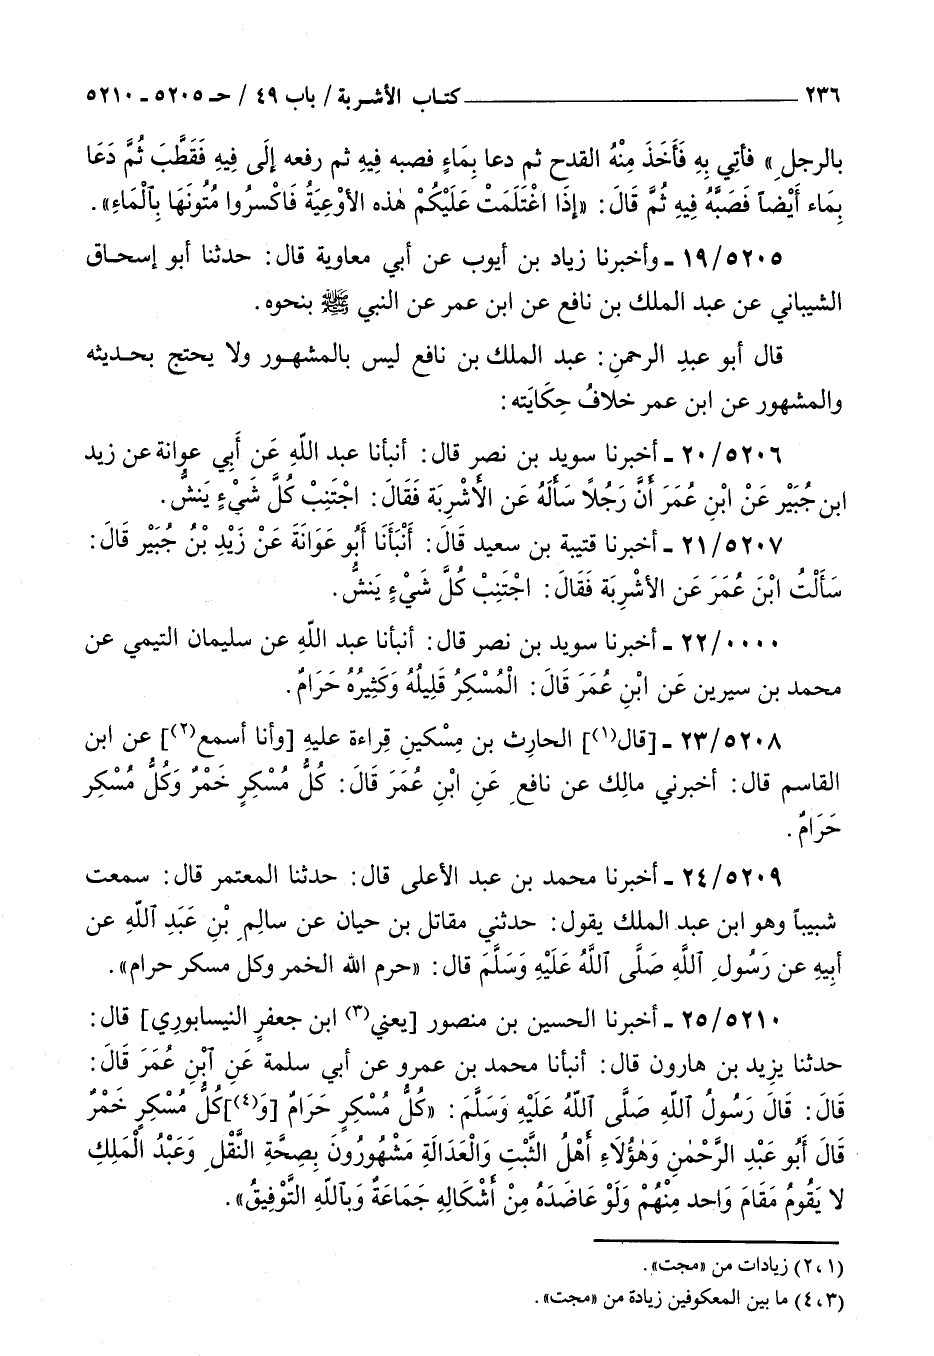 ٢٣٦ ـــــــ كتاب الأشربة / باب ٤٩ / حـ ٥٢٠٥ ـ ٥٢١٠
بالرجلِ» فأتِي بِهِ فَأَخَذَ مِنْهُ القدح ثم دعا بِمَاءٍ فصبه فِيهِ ثم رفعه إِلَى فِيهِ فَقَطَّبَ ثُمَّ دَعَا
بِمَاء أَيْضاً فَصَبَّهُ فِيهِ ثُمَّ قَالَ: «إِذَا اغْتَلَمَتْ عَلَيْكُمْ هٰذه الأَوْعِيَةُ فَاكْسِرُوا مُتُونَهَا بِٱلْمَاءِ».
١٩/٥٢٠٥ ـ وأخبرنا زياد بن أيوب عن أبي معاوية قال: حدثنا أبو إسحاق
الشيباني عن عبد الملك بن نافع عن ابن عمر عن النبي ﷺ بنحوه.
قال أبو عبدِ الرحمنِ: عبد الملك بن نافع ليس بالمشهور ولا يحتج بحديثه
والمشهور عن ابن عمر خلافُ حِكايَته:
٢٠/٥٢٠٦ ـ أخبرنا سويد بن نصر قال: أنبأنا عبد اللّهِ عَن أَبِي عوانة عن زيد
ابن جُبَيْر عَنْ ابْنِ عُمَرَ أَنَّ رَجُلاً سَأَلَهُ عَن الأَشْرِبَة فَقَالَ: اجْتَنِبْ كُلَّ شَيْءٍ يَنشُّ.
٢١/٥٢٠٧ ـ أخبرنا قتيبة بن سعيد قَالَ: أَنْبَأَنَا أَبُو عَوَانَةَ عَنْ زَيْدِ بْنُ جُبَيْر قَالَ:
سَأَلْتُ ابْنَ عُمَرَ عَن الأشْرِبَة فَقَالَ: اجْتَنِبْ كُلَّ شَيْءٍ يَنشُّ.
٢٢/٠٠٠٠ ـ أخبرنا سويد بن نصر قال: أنبأنا عبد اللّهِ عن سليمان التيمي عن
محمد بن سيرين عَن ابْنِ عُمَرَ قَالَ: الْمُسْكِرُ قَلِيلُهُ وَكَثِيرُهُ حَرَامٌ.
٢٣/٥٢٠٨ ـ [قال(١)] الحارِث بن مِسْكينٍ قِراءة عليهِ [وأنا أسمع(٢)] عن ابن
القاسم قال: أخبرني مالِك عن نافعٍ عَنِ ابْنِ عُمَرَ قَالَ: كُلُّ مُسْكِرٍ خَمْرٌ وَكُلُّ مُسْكِر
حَرَامٌ.
٢٤/٥٢٠٩ ـ أخبرنا محمد بن عبد الأعلى قال: حدثنا المعتمر قال: سمعت
شبيباً وهو ابن عبد الملك يقول: حدثني مقاتل بن حيان عن سالِمِ بْنِ عَبَدِ ٱللّهِ عن
أبِيه عن رَسُولِ ٱللَّهِ صَلَّى ٱللَّهُ عَلَيْهِ وَسَلَّمَ قال: «حرم الله الخمر وكل مسكر حرام».
٢٥/٥٢١٠ ـ أخبرنا الحسين بن منصور [يعني(٣) ابن جعفرٍ النيسابورِي] قال:
حدثنا يزِيد بن هارون قال: أنبأنا محمد بن عمرو عن أبي سلمة عَنِ ٱبْنِ عُمَرَ قَالَ:
قَالَ: قَالَ رَسُولُ ٱللّهِ صَلَّى ٱللّهُ عَلَيْهِ وَسَلَّمَ: «كُلُّ مُسْكِرٍ حَرَامٌ [وَ(٤)]كُلُّ مُسْكِرٍ خَمْرٌ
قَالَ أَبُو عَبْدِ الرَّحْمٰنِ وَهٰؤُلاَءِ أَهْلُ الثَّبْتِ وَالْعَدَالَةِ مَشْهُورُونَ بِصِحَّةِ النَّقْلِ وَعَبْدُ الْمَلِكِ
لا يَقُومُ مَقَامَ وَاحد مِنْهُمْ وَلَوْ عَاضَدَهُ مِنْ أَشْكَالِهِ جَمَاعَةٌ وَبِٱللّهِ التَّوْفِيقُ».
(١، ٢) زيادات من «مجت».
(٣، ٤) ما بين المعكوفين زيادة من «مجت».